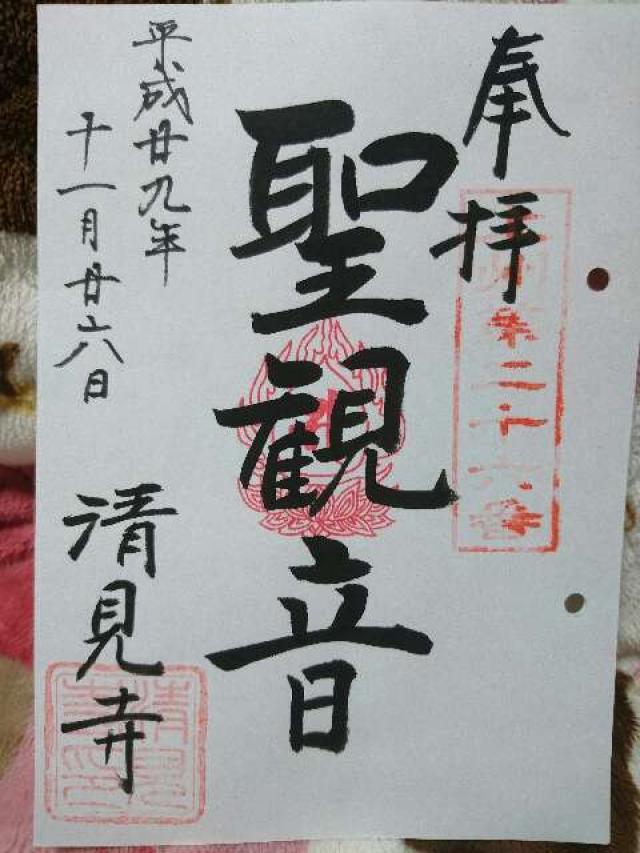 奉拝
州第二十六番
聖観音
平成廿九年
十一月廿六日
清見寺